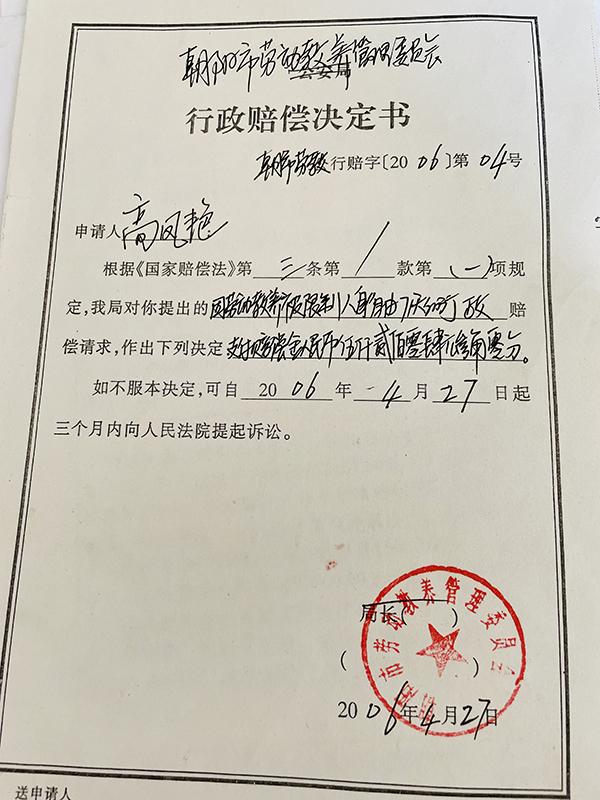 朝阳市劳动教养管理委员会
公安局
行政赔偿决定书
朝劳教行赔字〔2006〕第04号
申请人高凤艳
根据《国家赔偿法》第三条第1款第(一)项规
定,我局对你提出的因劳动教养被限制人身自由 赔
偿请求,作出下列决定支付赔偿金人民币伍仟贰佰零肆元 角零分。
如不服本决定,可自2006年4月27日起
三个月内向人民法院提起诉讼。
局长( )
( )
市劳动教养管理委员会
2006年4月27日
送申请人